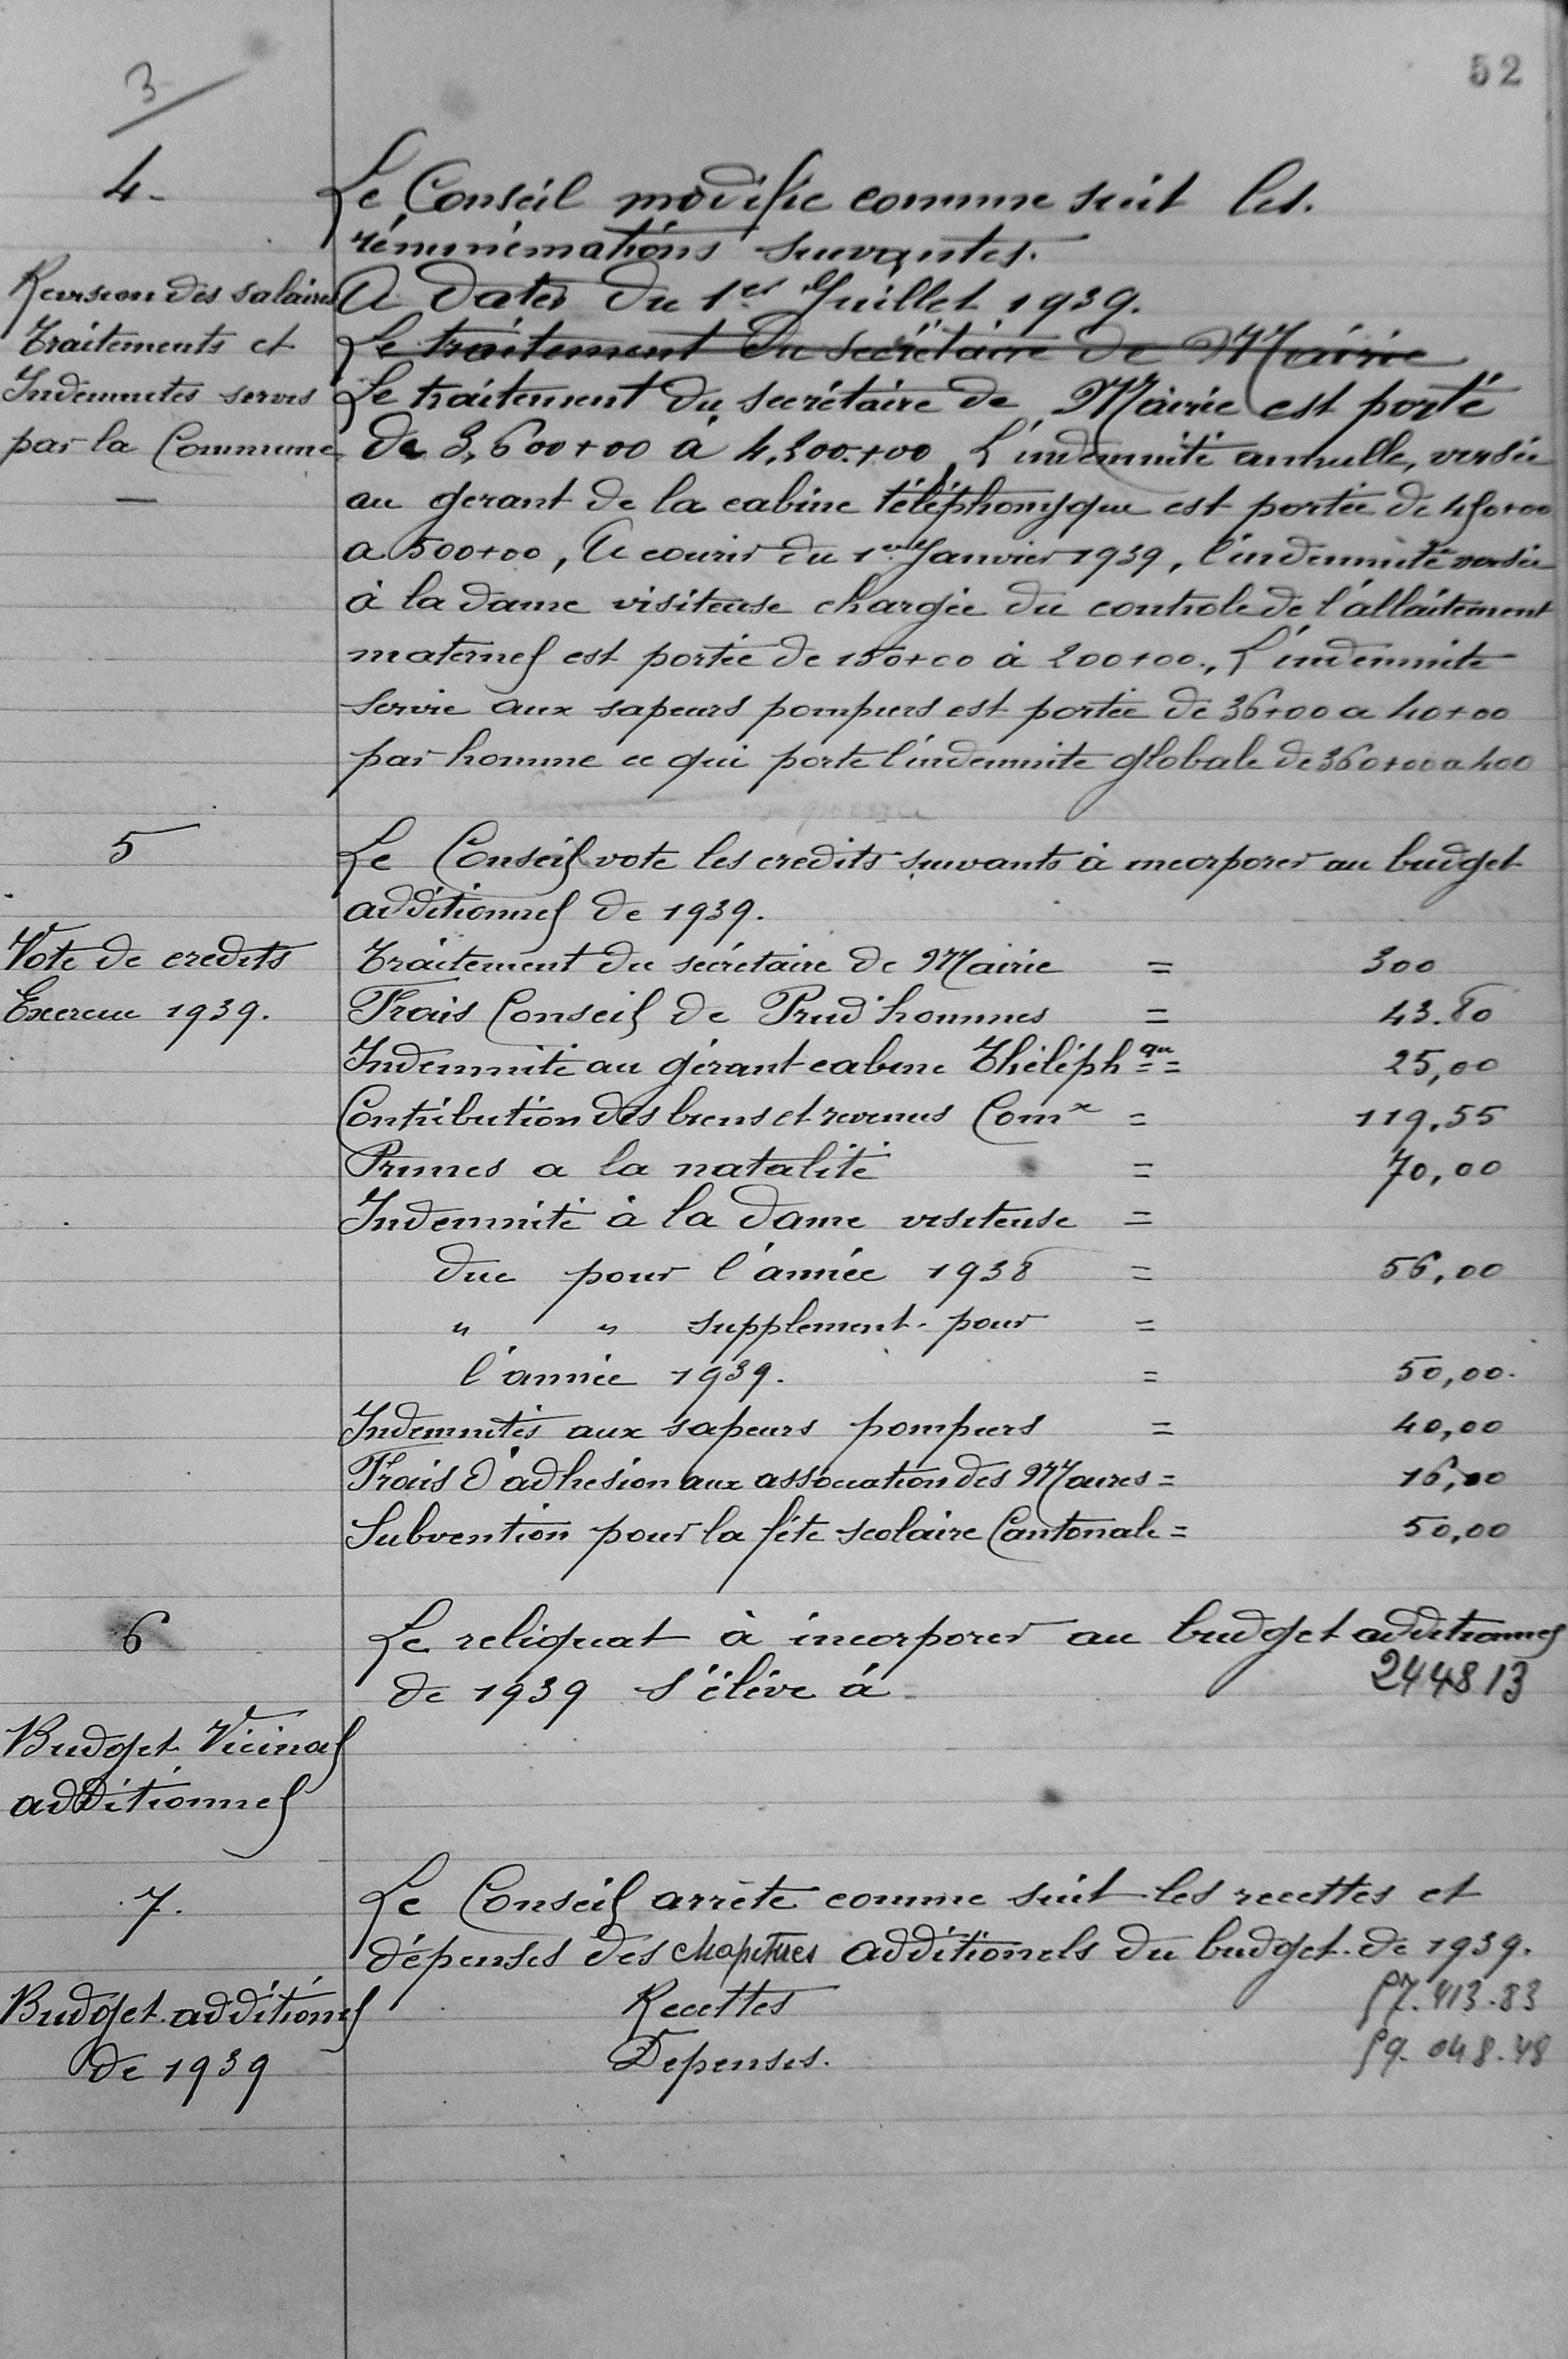 52
3
4-
Le Conseil modifie comme suit les.
rémunérations suivantes.
Revision des salaires
Traitements et
Indemnites servis
par la Commune
—
A dater du 1er Juillet 1939.
Le traitement du secrétaire de Mairie
Le traitement du secrétaire de Mairie est porté
de 3,600+00 à 4,200.+00, L'indemnité annulle, versée
au gerant de la cabine téléphonyque est portée de 450+00
a 500+00, A courir du 1er Janvier 1939, l'indemnité versée
à la dame visiteuse chargée du controle de l'allaitement
maternel est portée de 150+00 à 200+00., L'indemnite
servie aux sapeurs pompiers est portée de 36+00 a 40+00
par homme ce qui porte l'indemnite globale de 360+00 a 400
5
Vote de credits
Exercice 1939.
Le Conseil vote les credits suivants à incorporer au budget
additionnel de 1939.
Traitement du secrétaire de Mairie = 300
Frais Conseil de Prud'hommes = 43.80
Indemnité au gérant cabine Théléphque = 25,00
Contribution des biens et revenus Comx = 119,55
Primes a la natalité = 70,00
Indemnité à la dame visiteuse =
due pour l'année 1938 = 56,00
" " supplement pour =
l'année 1939. = 50,00.
Indemnités aux sapeurs pompiers = 40,00
Frais d'adhesion aux association des Maires = 16,00
Subvention pour la fête scolaire Cantonale = 50,00
6
Budget Vicinal
additionnel
Le reliquat à incorporer au budget additionnel
de 1939 s'élève à 244813
7.
Budget additionel
de 1939
Le Conseil arrête comme suit les recettes et
dépenses des chapitres additionels du budget de 1939.
Recettes 57.413.83
Depenses. 59.048.48